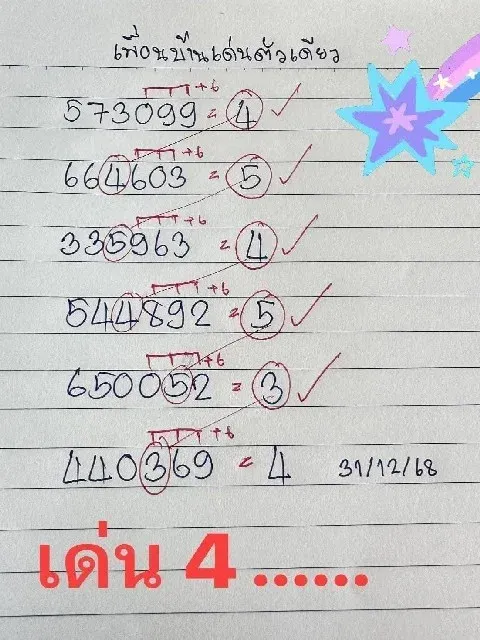 เพื่อนบ้านเด่นตัวเดียว
+6
573099 = 4
+6
664603 = 5
+6
335963 = 4
+6
544892 = 5
+6
650052 = 3
+6
440369 = 4 31/12/68
เด่น 4......